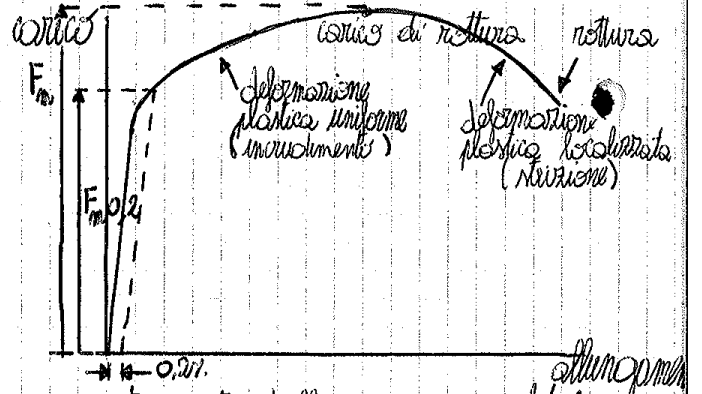 carico
carico di rottura
rottura
Fm
deformazione
plastica uniforme
(incrudimento)
deformazione
plastica localizzata
(strizione)
Fm 0,2
0,2%
allungamen